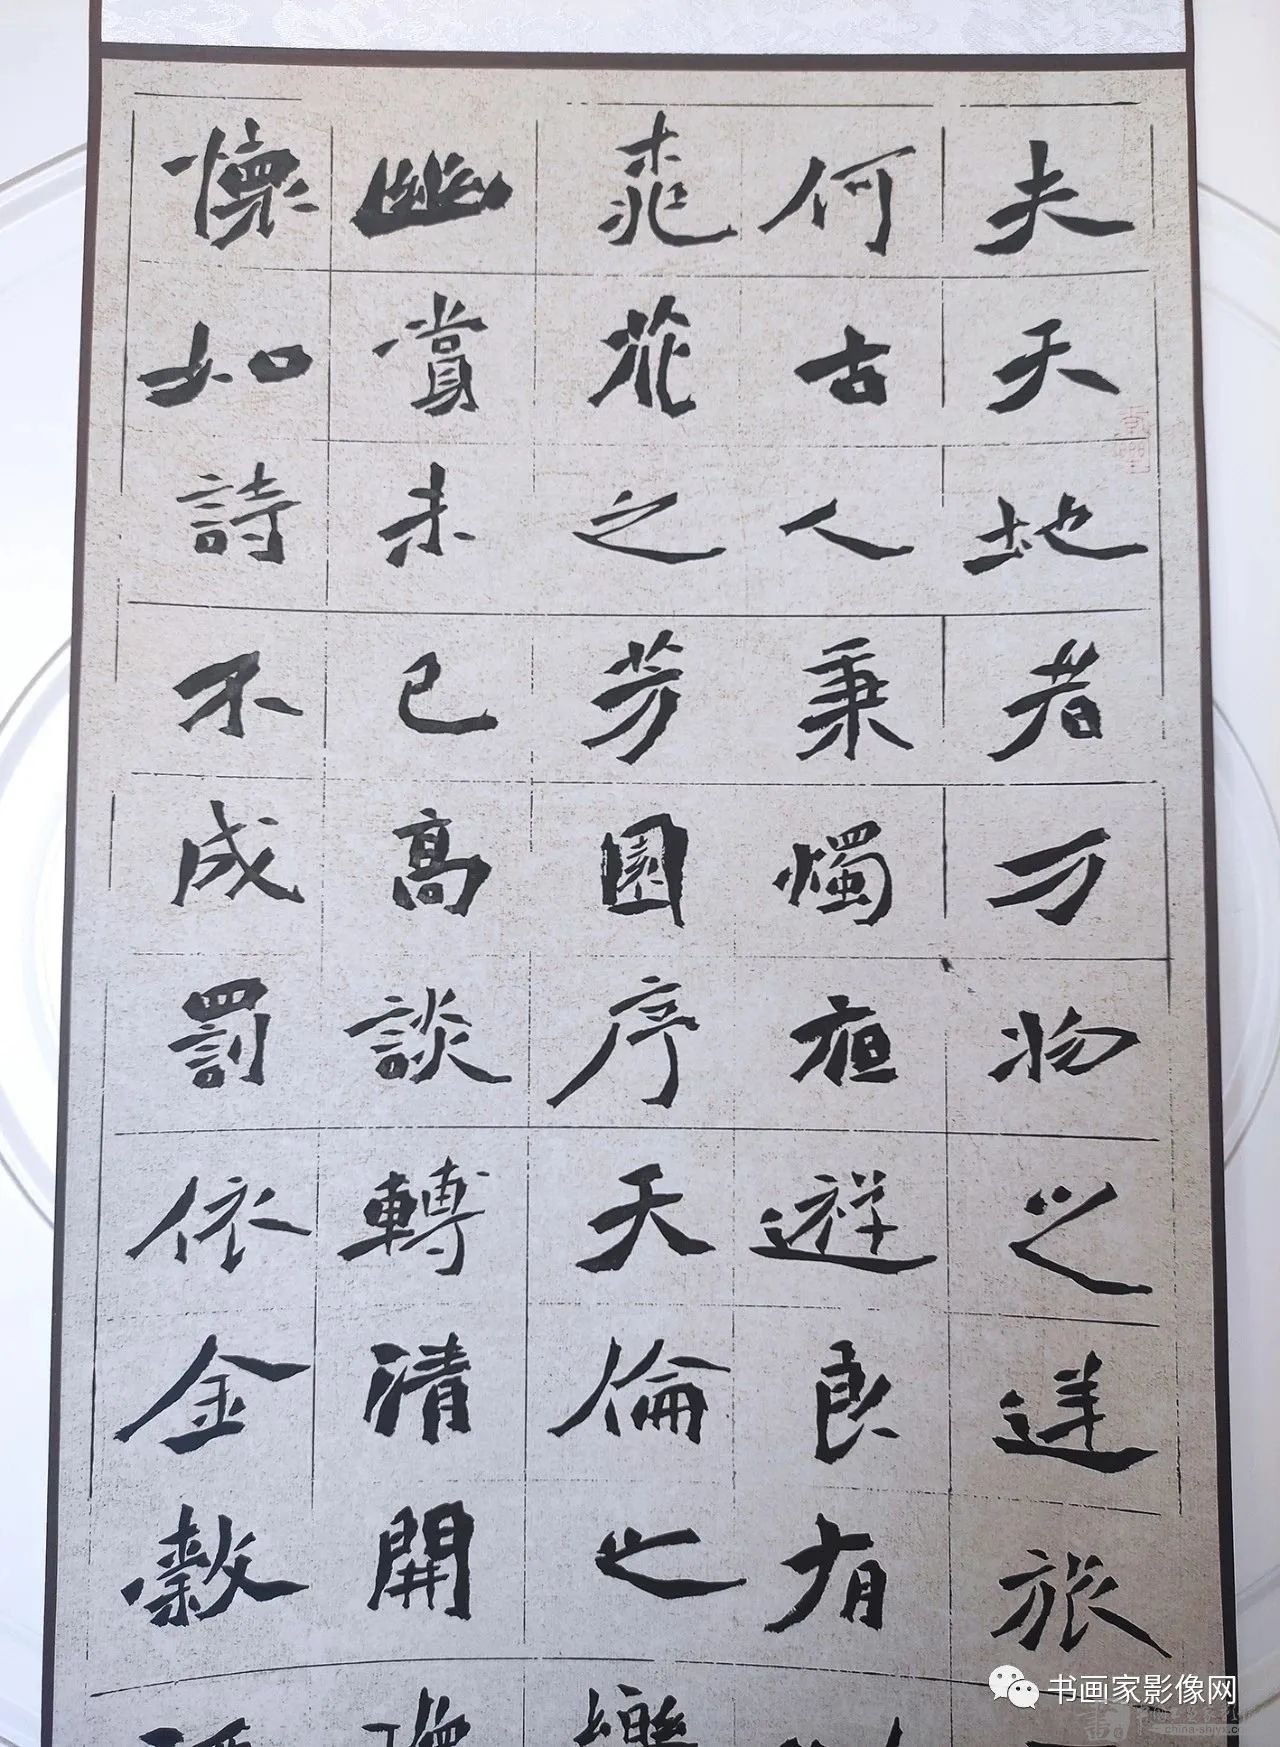 夫天地者万物之逆旅
何古人秉燭夜遊良有
桃花之芳園序天倫之
幽賞未已高談轉清開
懷如詩不成罰依金穀
书画家影像网